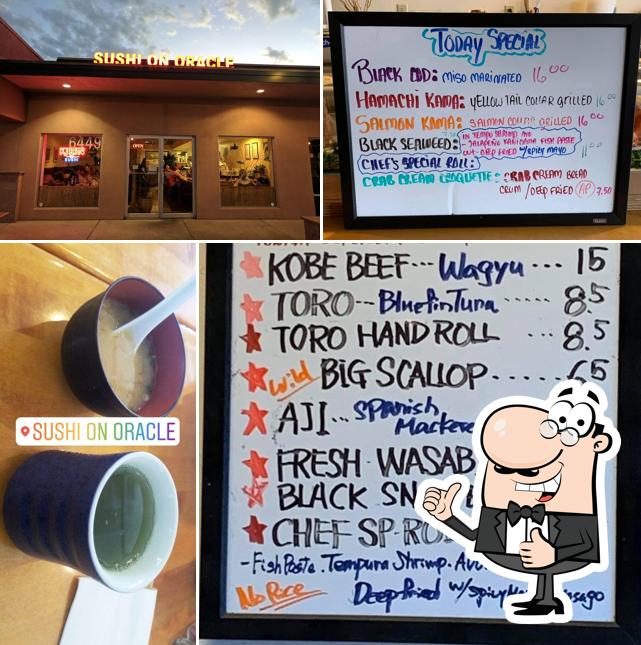 SUSHI ON ORACLE
6449
OPEN
SUSHI
TODAY SPECIAL
BLACK COD: MISO MARINATED 16.00
HAMACHI KAMA: YELLOW TAIL COLLAR GRILLED 16.00
SALMON KAMA: SALMON COLLAR GRILLED 16.00
BLACK SEAWEED: IN TEMPU SHRIMP AVO
- JALAPENO KANIKAMA FISH PASTE
OUT - DEEP FRIED W/SPICY MAYO
CHEF'S SPECIAL ROLL:
CRAB CREAM CROQUETTE: CRAB CREAM BREAD
CRUM / DEEP FRIED AP 7.50
SUSHI ON ORACLE
KOBE BEEF--- Wagyu --- 15
TORO-- BluefinTuna ----- 8.5
TORO HAND ROLL --- 8.5
Wild BIG SCALLOP-----
AJI-- Spanish
Mackere
FRESH WASAB
BLACK SN
CHEF SP-RO
- Fish Paste. Tempura Shrimp. Avo
No Rice Deep fried w/spicy